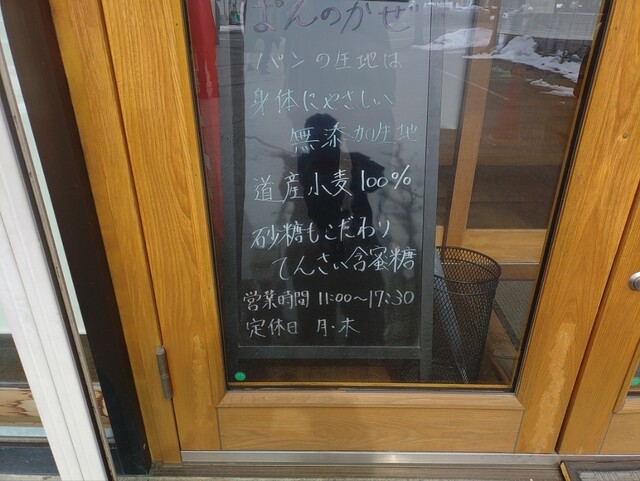 ぱんのかぜ
パンの生地は
身体にやさしい
無添加生地
道産小麦100%
砂糖もこだわり
てんさい含蜜糖
営業時間 11:00~17:30
定休日 月・木